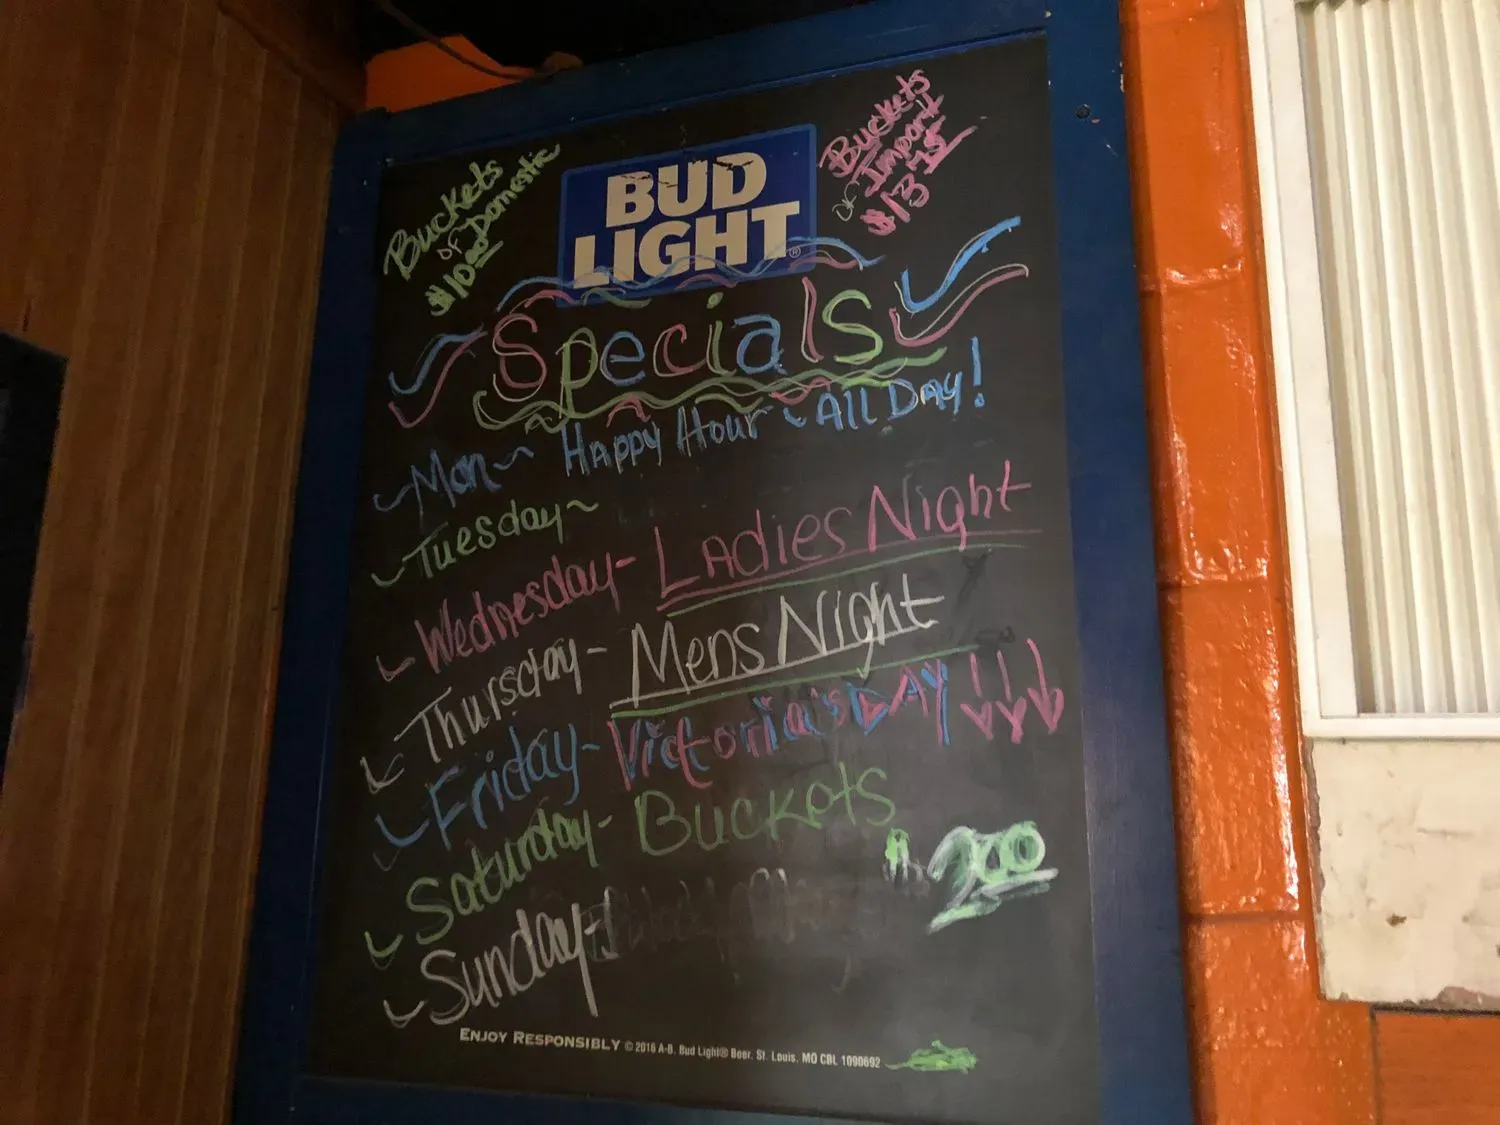 Buckets
of Domestic
$10.00
BUD
LIGHT®
Buckets
of Import
$13.75
Specials
Mon~ Happy Hour ~ All Day!
Tuesday~
Wednesday- Ladies Night
Thursday- Mens Night
Friday- Victoria's DAY!!!
Saturday- Buckets
Sunday-
ENJOY RESPONSIBLY © 2016 A-B, Bud Light® Beer, St. Louis, MO CBL 1090692